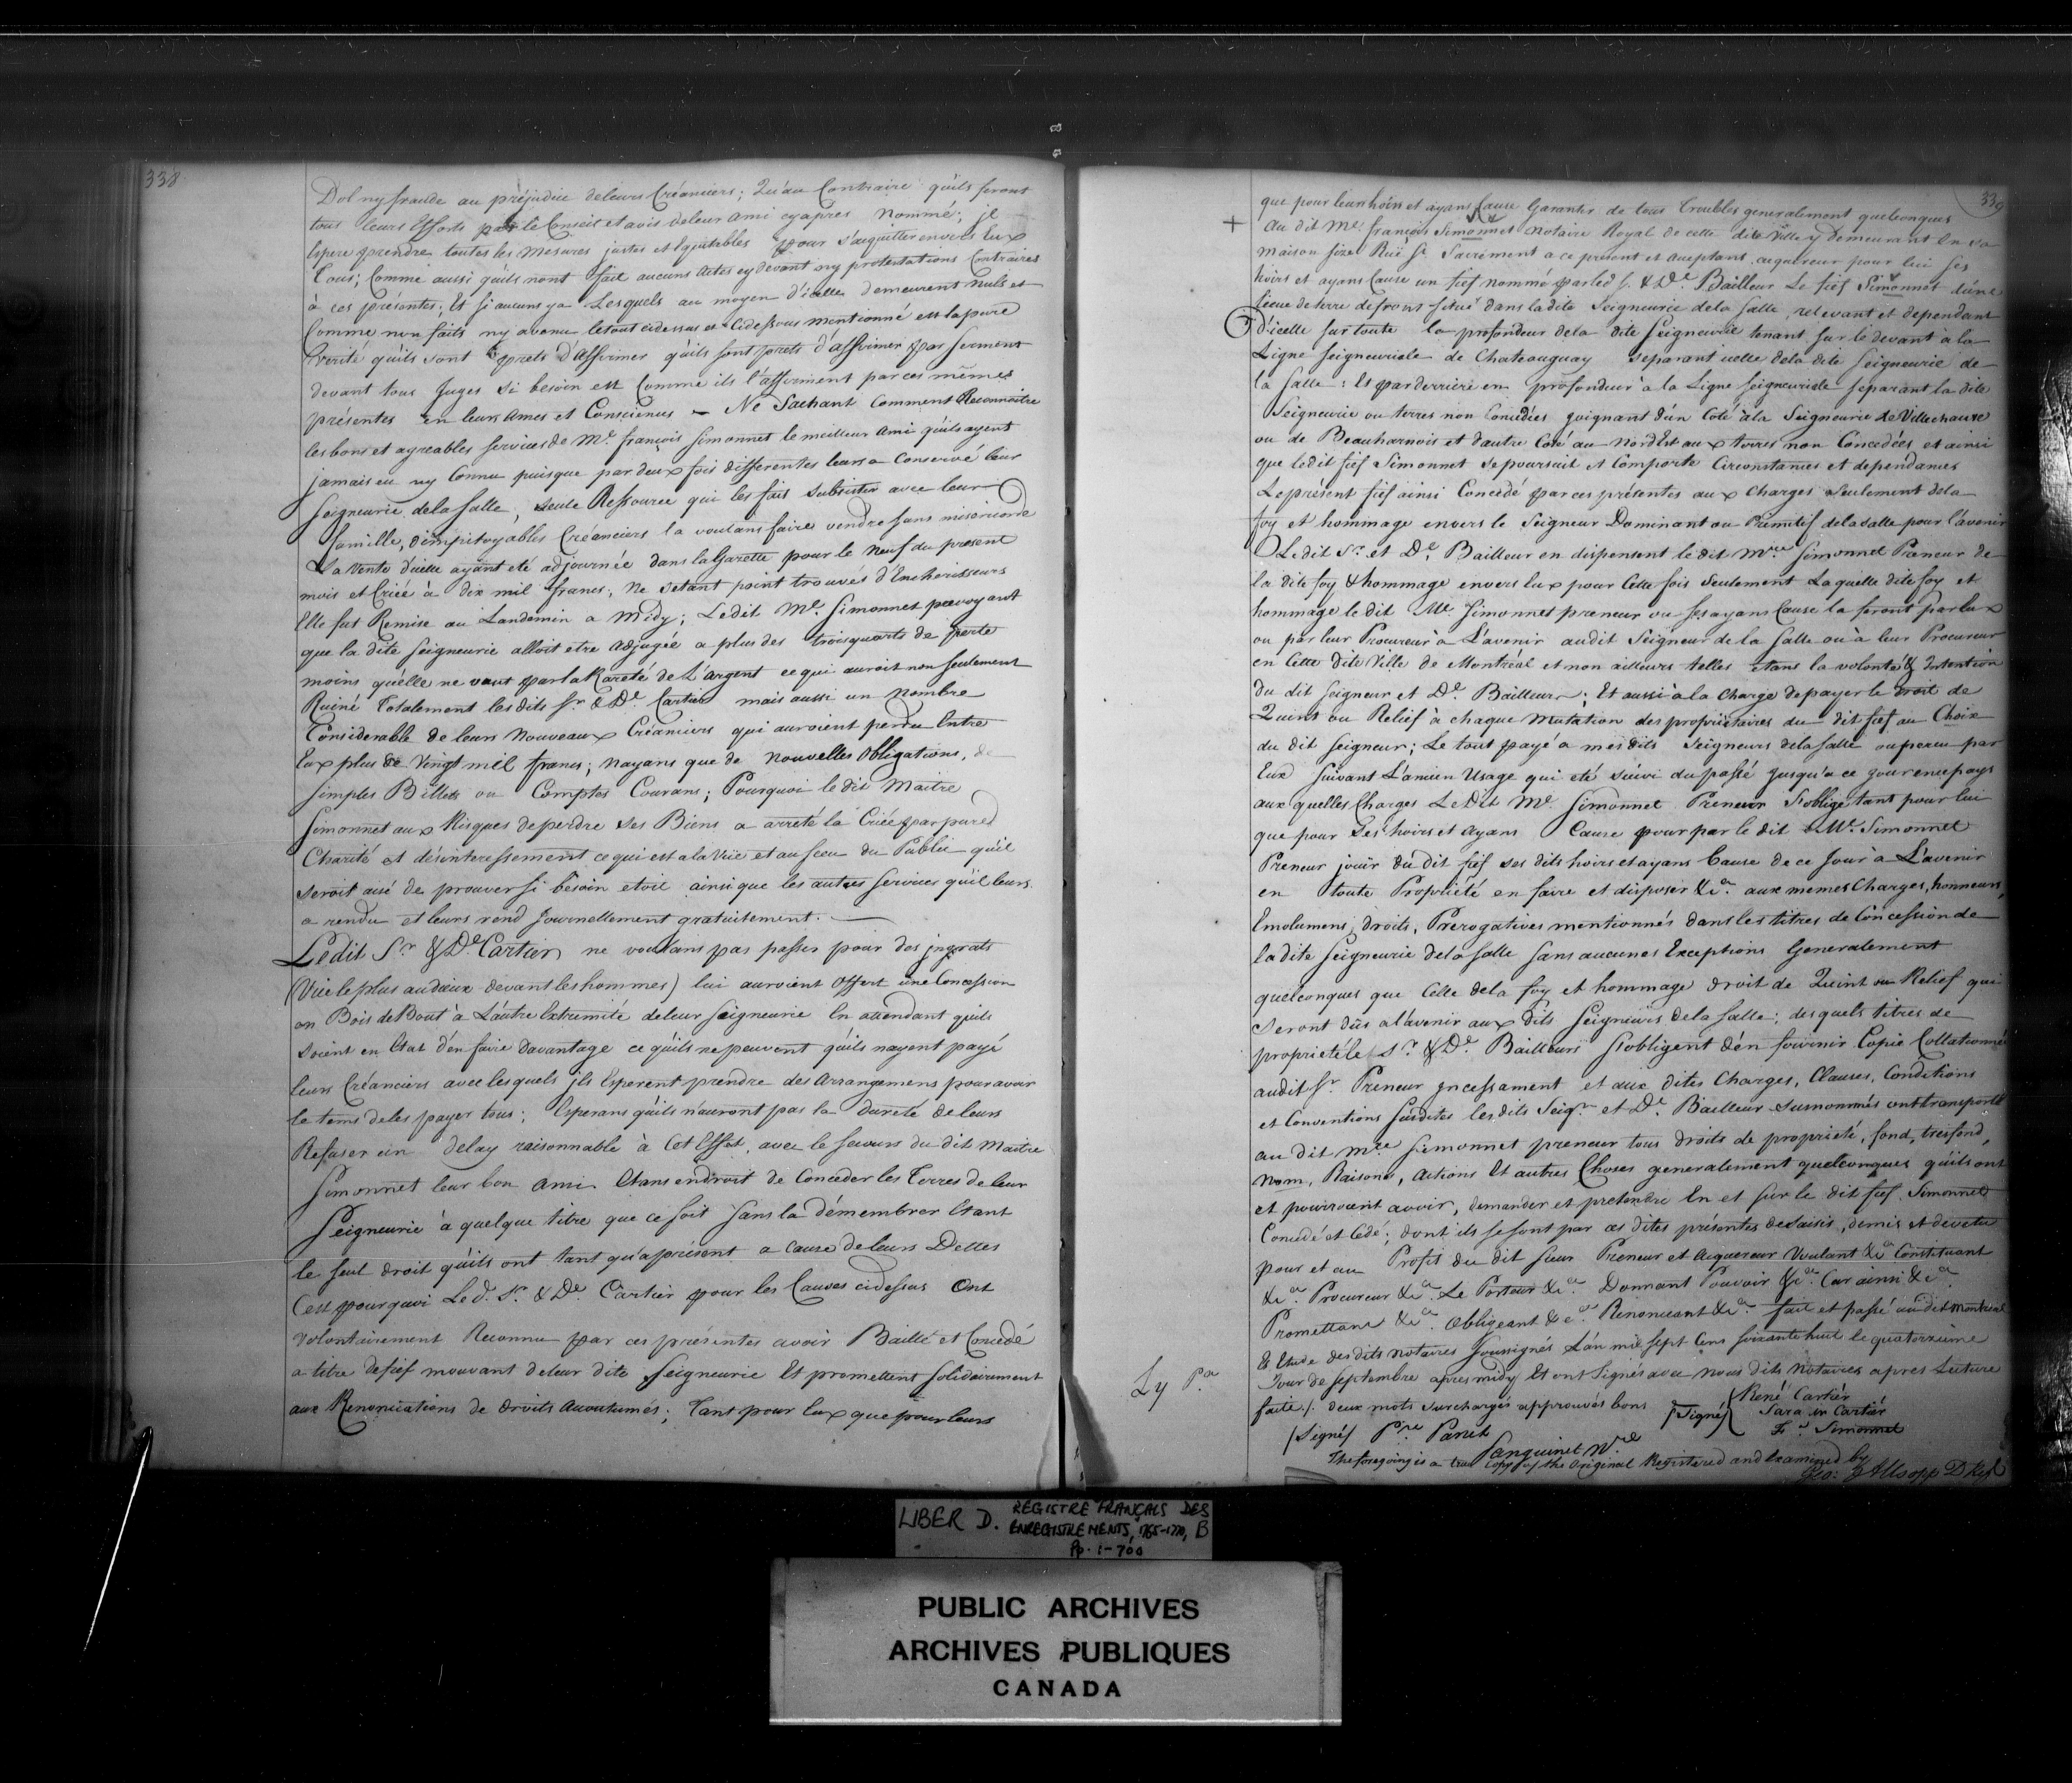 338
Dol ny fraude au préjudice de leurs Créanciers; Qu'au Contraire qu'ils feront
tous leurs Efforts par le Conseil et avis de leur ami cy apres Nommé; je
Espere prendre toutes les Mesures justes et Equitables pour s'aquitter envers Eux
Tous; Comme aussi qu'ils nont fait aucuns Actes cy devant ny protestations Contraires
à ces présentes; Et si aucuns ya Lesquels au moyen d'icelle demeurent nuls et
Comme non faits ny avenu le tout cidessus et Cidessous mentionné est la pure
Verité qu'ils sont prets d'affirmer qu'ils sont prets d'affirmer par serment
devant tous Juges si besoin est Comme ils l'afferment par ces mêmes
présentes en leurs ames et Consciences – Ne Sachant Comment Reconnoitre
les bons et agreables services de Me. françois Simonnet le meilleur Ami qu'ils ayent
jamais eu ny Connu puisque par deux fois differentes leurs a Conservé leur
Seigneurie de la Salle, seule Ressource qui les fais subsister avec leur
famille, d'impitoyables Créanciers la voulans faire vendre sans misericorde
La Vente d'icelle ayant eté adjournée dans la Gazette pour le Neuf du present
mois et Criée à Dix mil francs; Ne setant point trouvés d'Encherisseurs
Elle fut Remise au Landemin a Midy; Ledit Me. Simonnet prevoyant
que la dite Seigneurie alloit etre Adjugée a plus des trois quarts de perte
moins qu'elle ne vaut par la Rareté de L'argent ce qui auroit non seulement
Ruiné Totalement les dits Sr. & De. Cartier mais aussi un Nombre
Considerable de leurs Nouveaux Créanciers qui auroient perdu Entre
Eux plus de Vingt mil francs; nayans que de Nouvelles Obligations, de
simples Billets ou Comptes Courans; Pourquoi le dit Maitre
Simonnet aux Risques de perdre ses Biens a arreté la Criée par pure
Charité et désinteressement ce qui est a la Vüe et au sceu du Public qu'il
seroit aisé de prouver si bésoin etoit ainsi que les autres services qu'il leurs
a rendu et leurs rend Journellement gratuitement.
Ledit Sr. & De. Cartier ne voulans pas passer pour des jngrats
(Vice le plus audieux devant les hommes) lui auroient Offert une Concession
en Bois de Bout à L'autre Extremité de leur Seigneurie En attendant qu'ils
soient en Etat d'en faire davantage ce qu'ils ne peuvent qu'ils nayent payé
leurs Créanciers avec lesquels jls Esperent prendre des Arrangemens pour avoir
le tems de les payer tous; Esperans qu'ils n'auront pas la dureté de leurs
Refuser un delay raisonnable à Cet Effet, avec le secours du dit Maitre
Simonnet leur bon Ami Etans en droit de Conceder les Terres de leur
Seigneurie à quelque titre que ce soit sans la démembrer Etant
le seul droit qu'ils ont tant qu'apresent a cause de leurs Dettes
Cest pourquoi Led. Sr. & De Cartier pour les Causes cidessus Ont
Volontairement Reconnu par ces présentes avoir Baillé et Concédé
a titre de fief mouvant de leur dite Seigneurie Et promettent solidairement
aux Renonciations de droits Accoutumés; Tant pour Eux que pour leurs
339
que pour leurs hoirs et ayans Cause Garantir de tous Troubles generalement quelconques
+ Au dit Me. françois Simonnet Notaire Royal de cette dite Ville y demeurant En sa
maison size Rüe St. Sacrement a ce present et acceptant, acquereur pour lui ses
hoirs et ayans Cause un fief nommé par led S. & De. Bailleur Le fief Simonnet d'une
lieue de terre de front situé dans la dite Seigneurie de la Salle, relevant et dependant
d'icelle sur toute la profondeur dela dite Seigneurie tenant sur le devant à la
Ligne Seigneuriale de Chateauguay separant icelle dela dite Seigneurie de
la Salle: Et par derriere en profondeur à la Ligne Seigneuriale separant la dite
Seigneurie ou terres non Concedées joignant d'un Coté à la Seigneurie de Villechauve
ou de Beauharnois et dautre Coté au Nord Est aux terres non Concedées et ainsi
que le dit fief Simonnet se poursuit et Comporte Circonstances et dependances
Le présent fief ainsi Concedé par ces présentes aux Charges seulement dela
foy et hommage envers le Seigneur Dominant ou Primitif de la Salle pour l'avenir
Ledit Sr. et De. Bailleur en dispensent le dit Mre. Simonnet Preneur de
la dite foy & hommage envers Eux pour Cette fois seulement Laquelle dite foy et
hommage le dit Me Simonnet preneur ou ses ayans Cause la feront par Eux
ou par leur Procureur à L'avenir audit Seigneur de la Salle ou à leur Procureur
en Cette dite Ville de Montréal et non ailleurs telles etans la volonté & Intention
du dit Seigneur et De. Bailleur; Et aussi à la Charge de payer le droit de
Quint ou Relief à chaque Mutation des propriétaires du dit fief au Choix
du dit Seigneur; Le tout payé a mesdits Seigneurs de la Salle ou perçu par
Eux suivant L'ancien Usage qui eté suivi du passé jusqu'a ce jour en ce pays
aux quelles Charges Le Dit Me. Simonnet Preneur s'oblige tant pour lui
que pour Ses hoirs et ayans Cause pour par le dit Me. Simonnet
Preneur jouïr du dit fief ses dits hoirs et ayans Cause de ce Jour à L'avenir
en toute Propriété en faire et disposer &ca. aux memes Charges, honneurs,
Emolumens, droits, Prerogatives mentionnés dans les titres de Concession de
la dite Seigneurie de la Salle sans aucunes Exceptions Generalement
quelconques que Celle dela foy et hommage droit de Quint ou Relief qui
seront dûs a l'avenir aux dits Seigneurs de la Salle; desquels titres de
proprieté le Sr. & De. Bailleurs s'obligent d'en fournir Copie Collationnée
audit Sr. Preneur jncessament et aux dites Charges, Clauses, Conditions
et Conventions susdites les dits Seigr. et De. Bailleur surnommés ont transporté
au dit Mre Simonnet preneur tous droits de proprieté, fond, tresfond,
Nom, Raisons, Actions Et autres Choses generalement quelconques qu'ils ont
et pourroient avoir, demander et pretendre En et sur le dit fief Simonnet
Concédé et Cedé; dont ils se sont par ces dites présentes desaisis, demis et devetu
pour et au Profit du dit sieur Preneur et Acquereur Voulant &ca Constituant
&ca. Procureur &ca. Le Porteur &ca. Donnant Pouvoir &ca. Car ainsi &ca.
Promettant &ca. Obligeant &ca. Renonceant &ca. fait et passé au dit Montreal
Et Etude des dits notaires soussignés L'an mil sept Cens soixante huit le quatorzieme
Jour de Septembre apres midy Et ont signés avec nous dits Notaires apres Lecture
faite /. deux mots surchargés approuvés bons /Signé/ René Cartier
Sara Cartier
Fs. Simonnet
/Signé/ Pre Panet
Sanguinet Nre
The foregoing is a true Copy of the Original Registered and Examined by
Geo: Allsopp D Regr
LIBER D. REGISTRE FRANÇAIS DES
ENREGISTREMENTS, 1765-1770, B
Pp. 1-700
PUBLIC ARCHIVES
ARCHIVES PUBLIQUES
CANADA